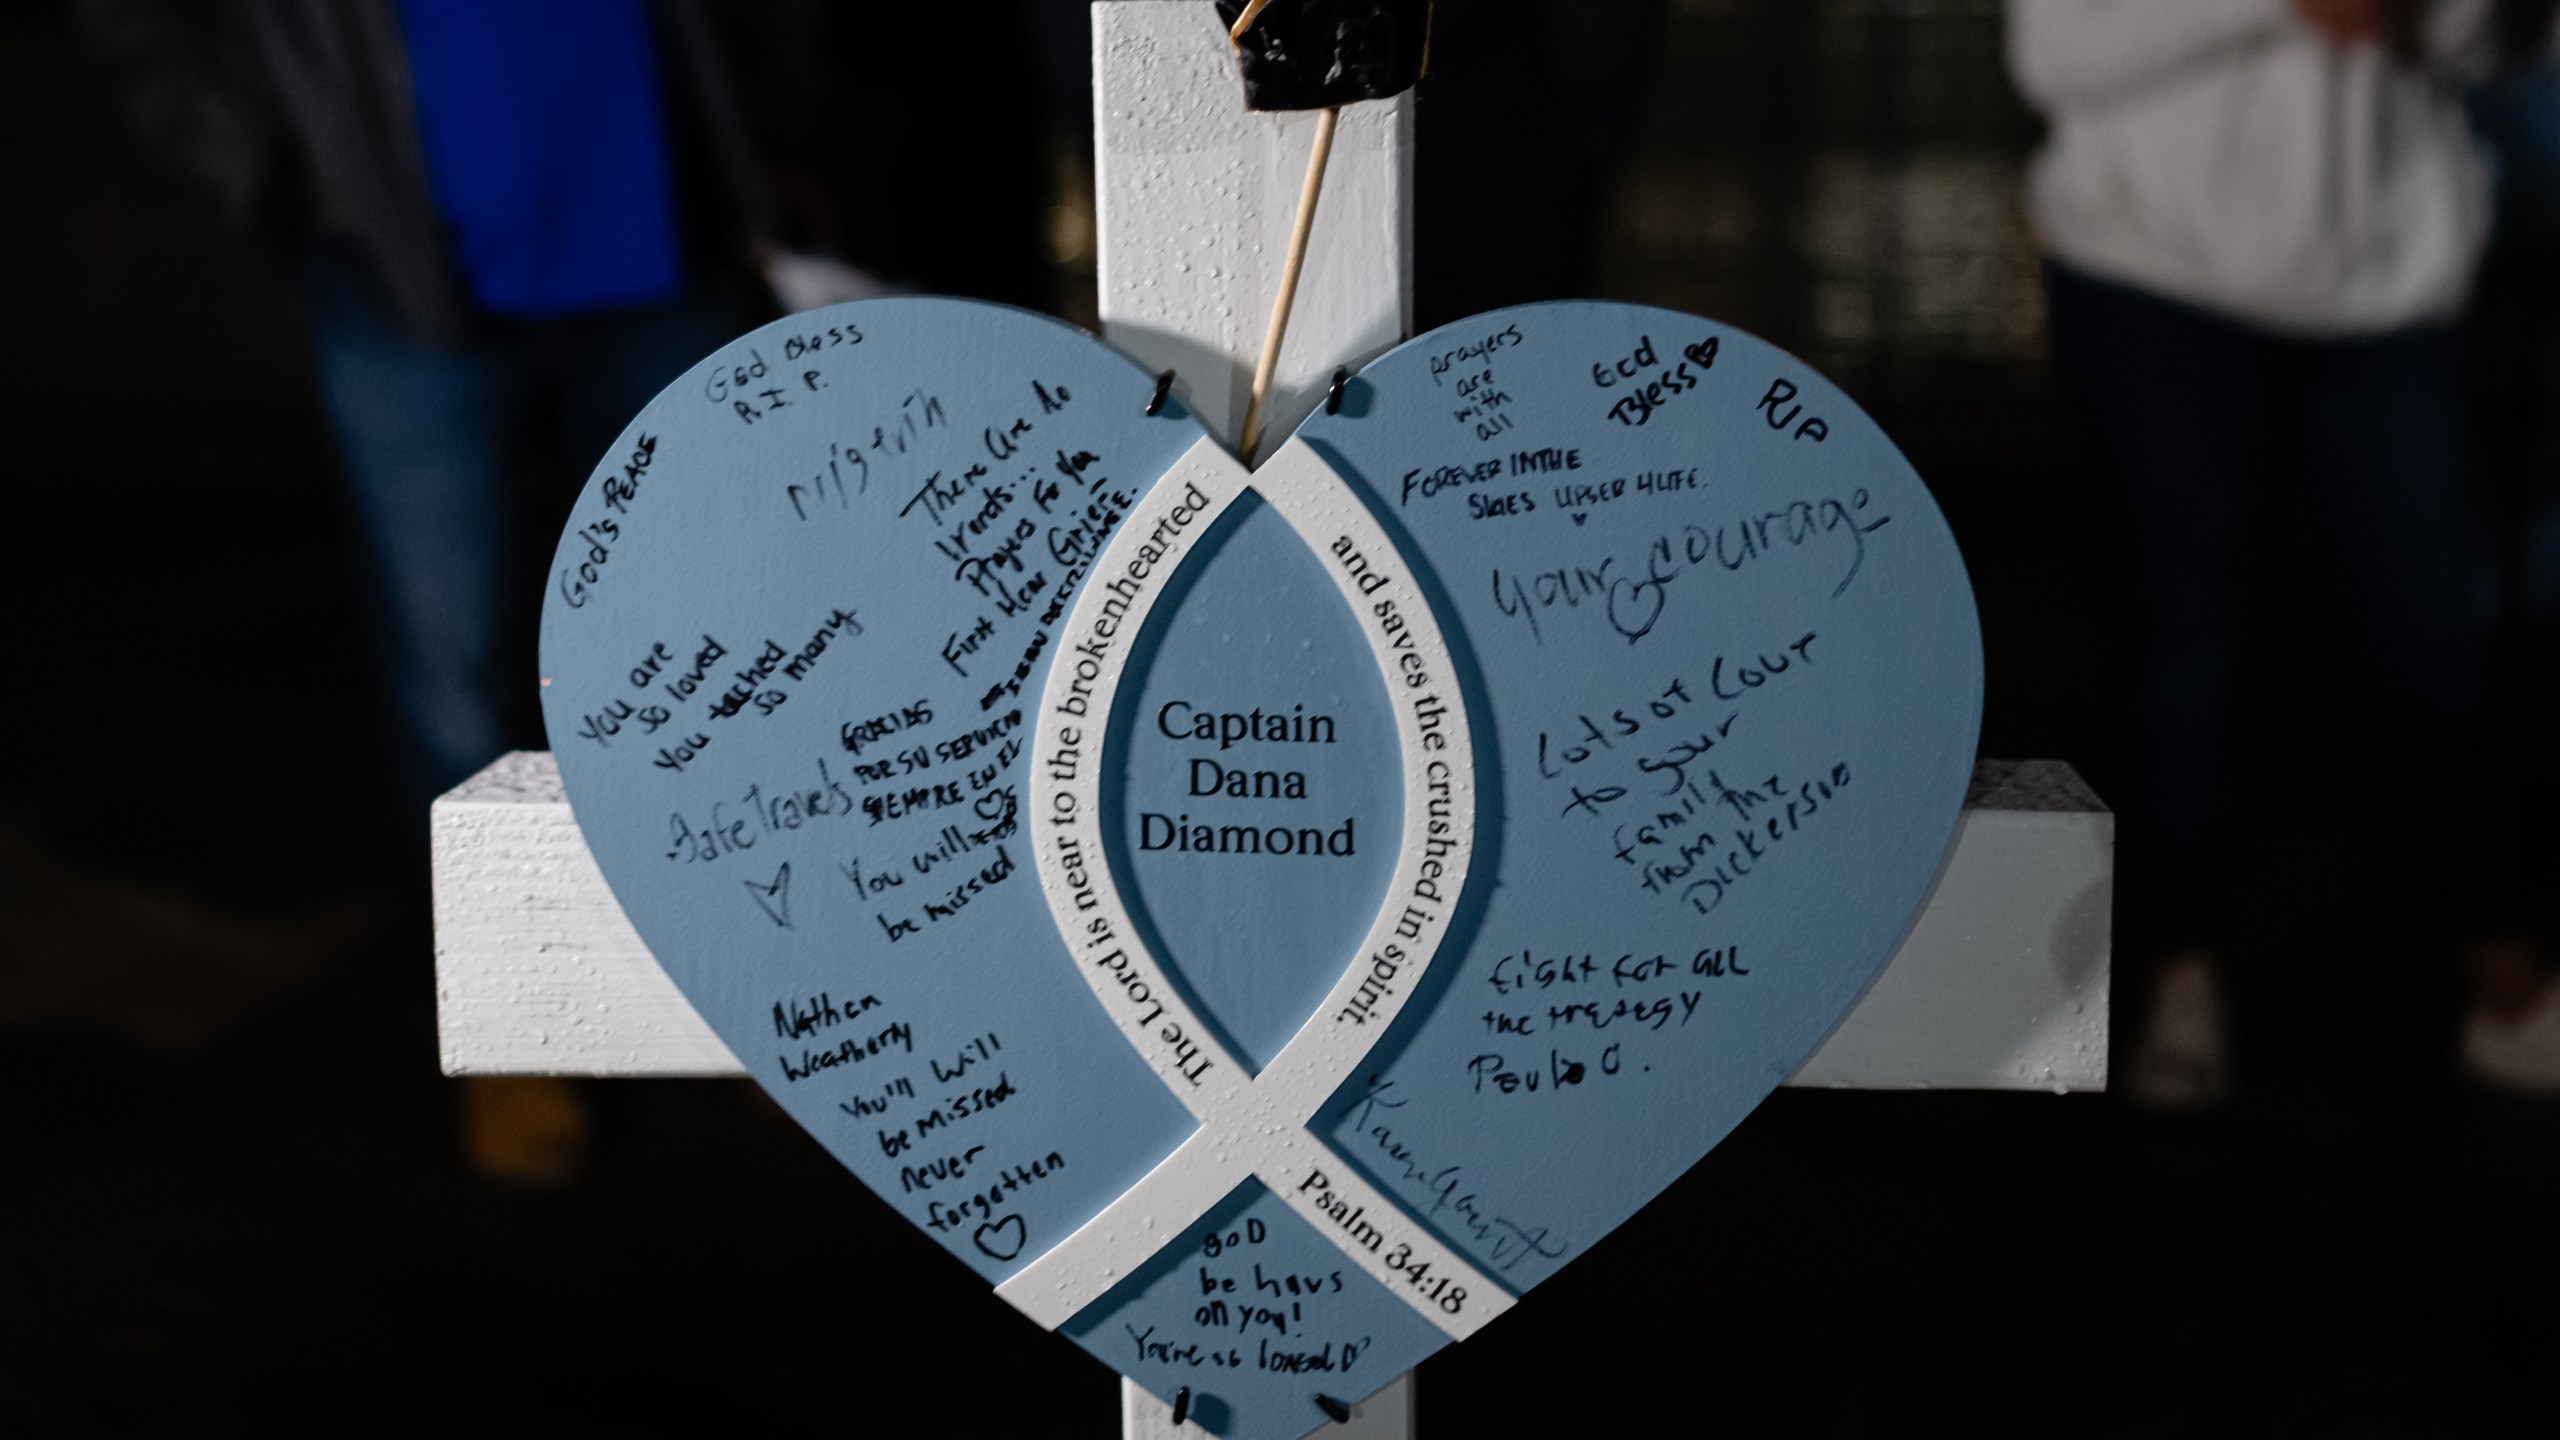 God Bless
R.I.P.
God's PEACE
There Are No
Words...
Prayers For You
First
GRACIAS
POR SU SERVICIO
SIEMPRE EN EL
You are
so loved
You touched
so many
Safe Travels
You will
be missed
Nathan
Weatherly
You'll will
be missed
never
forgotten
The Lord is near to the brokenhearted
and saves the crushed in spirit.
Psalm 34:18
Captain
Dana
Diamond
prayers
are
with
all
God
Bless
RIP
FOREVER IN THE
your courage
Lots of
to your
family
from the
Dickerson
fight for all
the
Paulo O.
Karen
goD
be
on you!
You're so